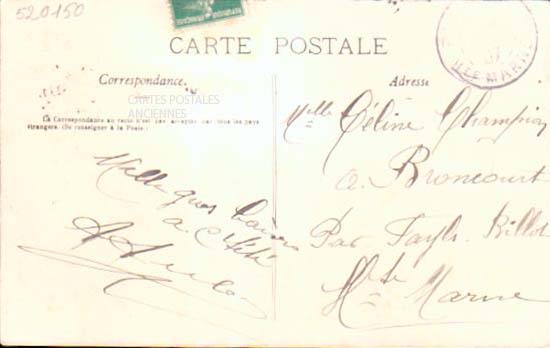 520150
CARTE POSTALE
Correspondance.
Adresse
CARTES POSTALES
ANCIENNES
La Correspondance au recto n'est pas acceptée par tous les pays
étrangers. (Se renseigner à la Poste.)
Mille gros baisers
a
Melle Céline Champion
a Broncourt
Par Fayls-Billot
Hte Marne
HTE MARNE